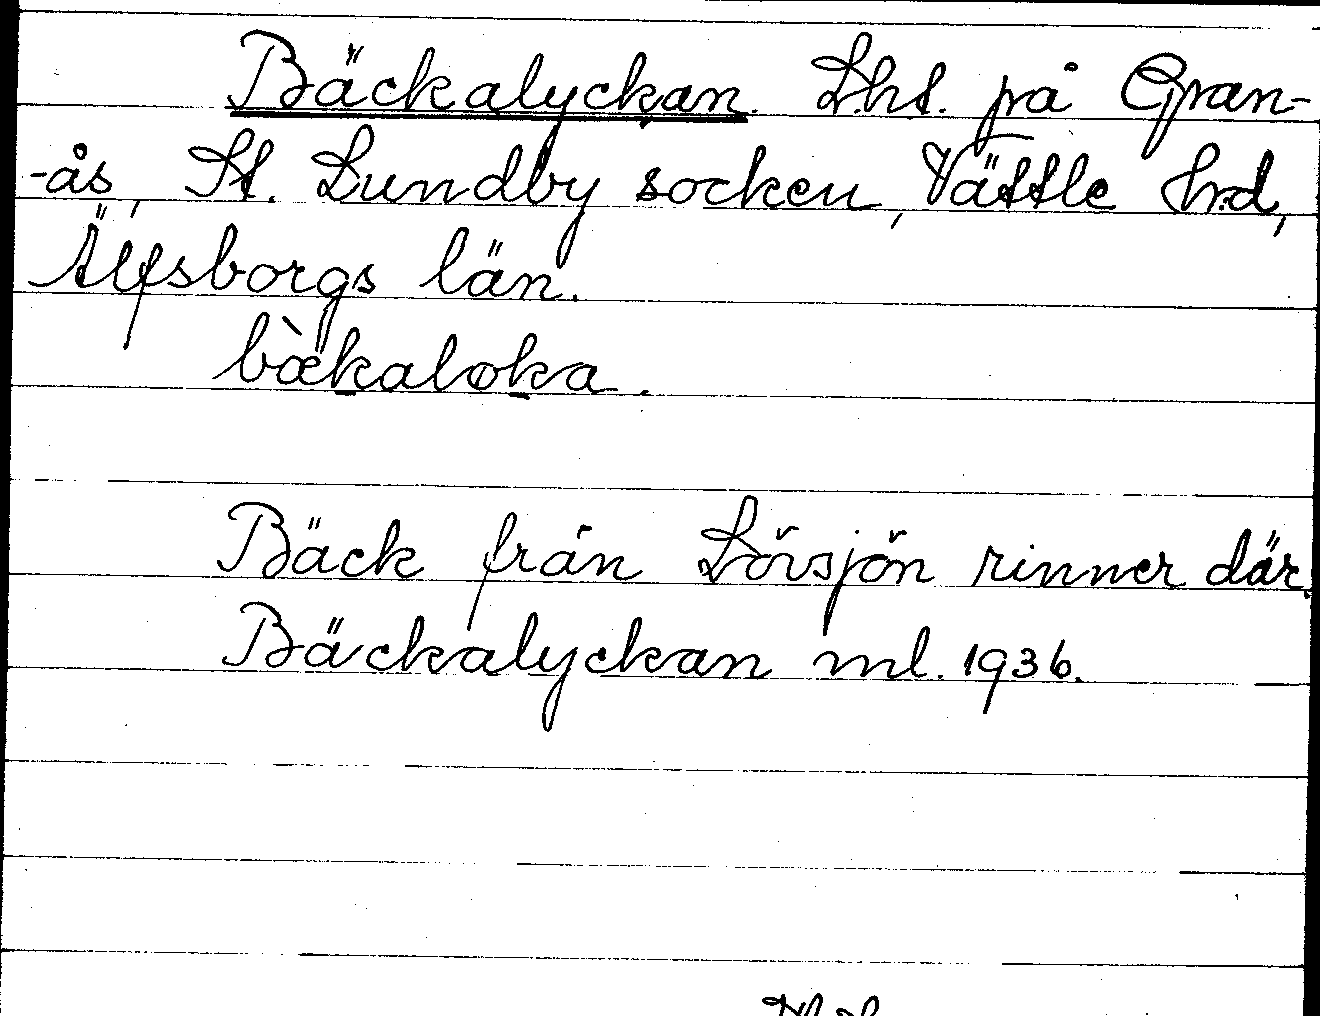 Bäckalyckan. Lht. på Gran-
-ås, St. Lundby socken, Vättle hrd,
Älfsborgs län.
bæ̀kaløka.
Bäck från Lövsjön rinner där.
Bäckalyckan ml. 1936.